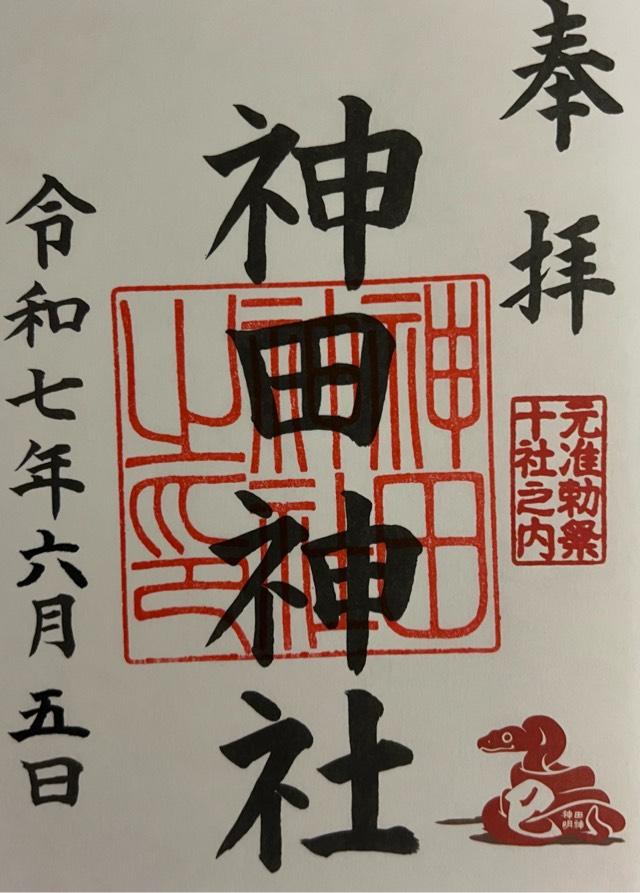 奉拝
元准勅祭
十社之内
神田神社
神田
神社
之印
令和七年六月五日
巳
神田
明神